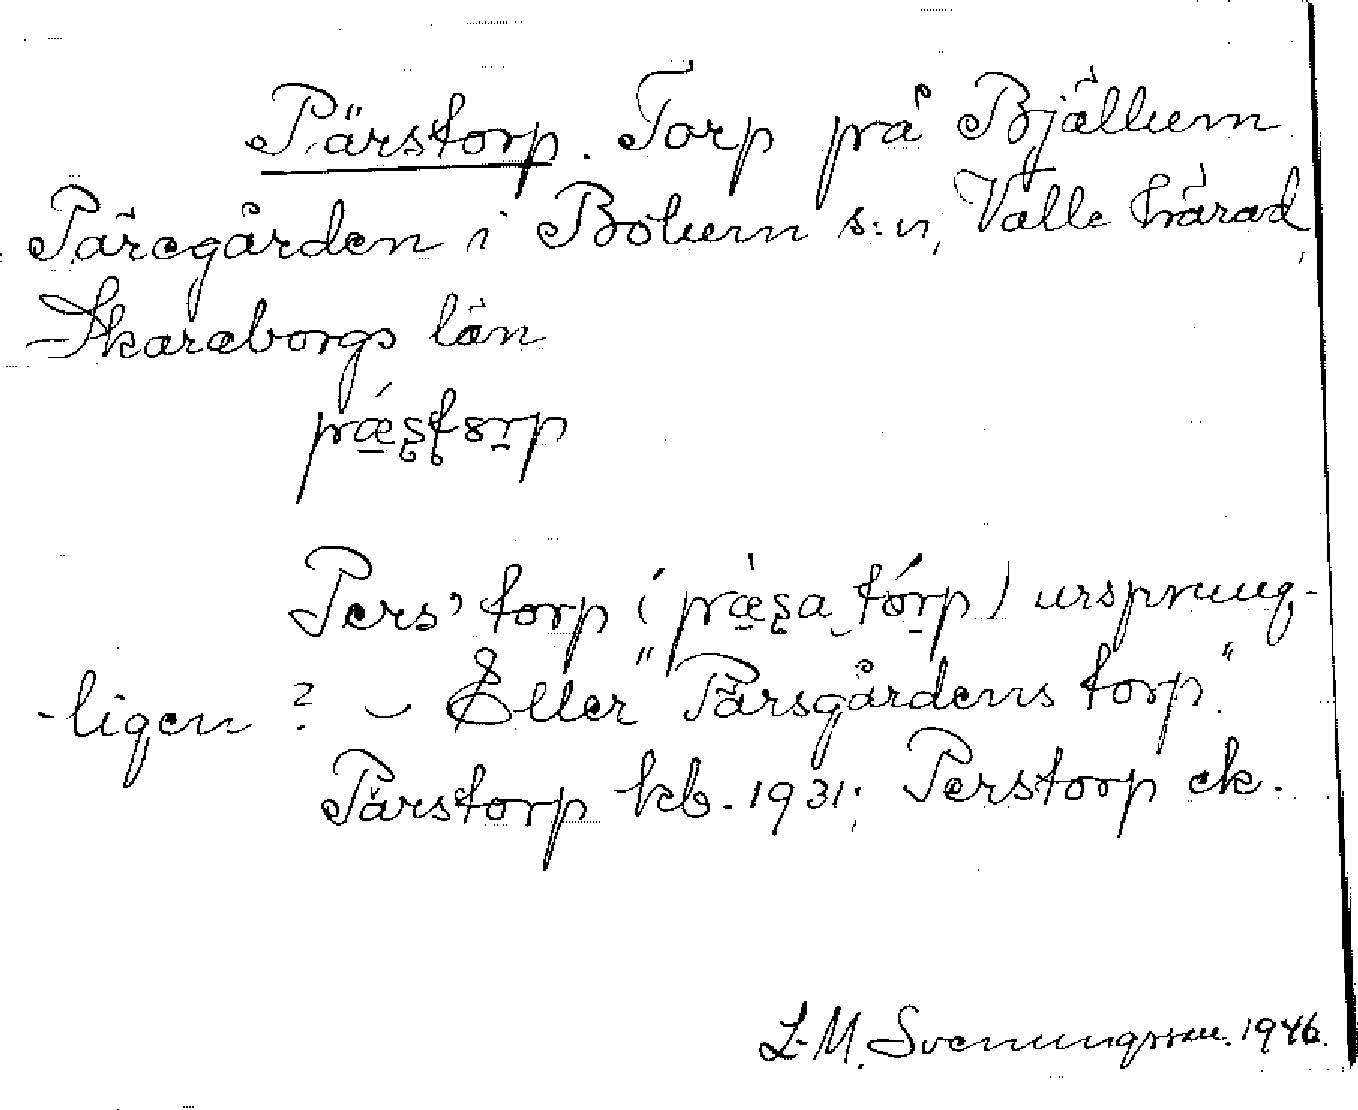 Pärstorp. Torp på Bjällum
Pärsgården i Bolum s:n, Valle härad,
Skaraborgs län
Pers' torp (                ) ursprung-
-ligen? – Eller "Pärsgårdens torp".
Pärstorp kb. 1931; Perstorp ek.
L. M. Svenungsson. 1946.